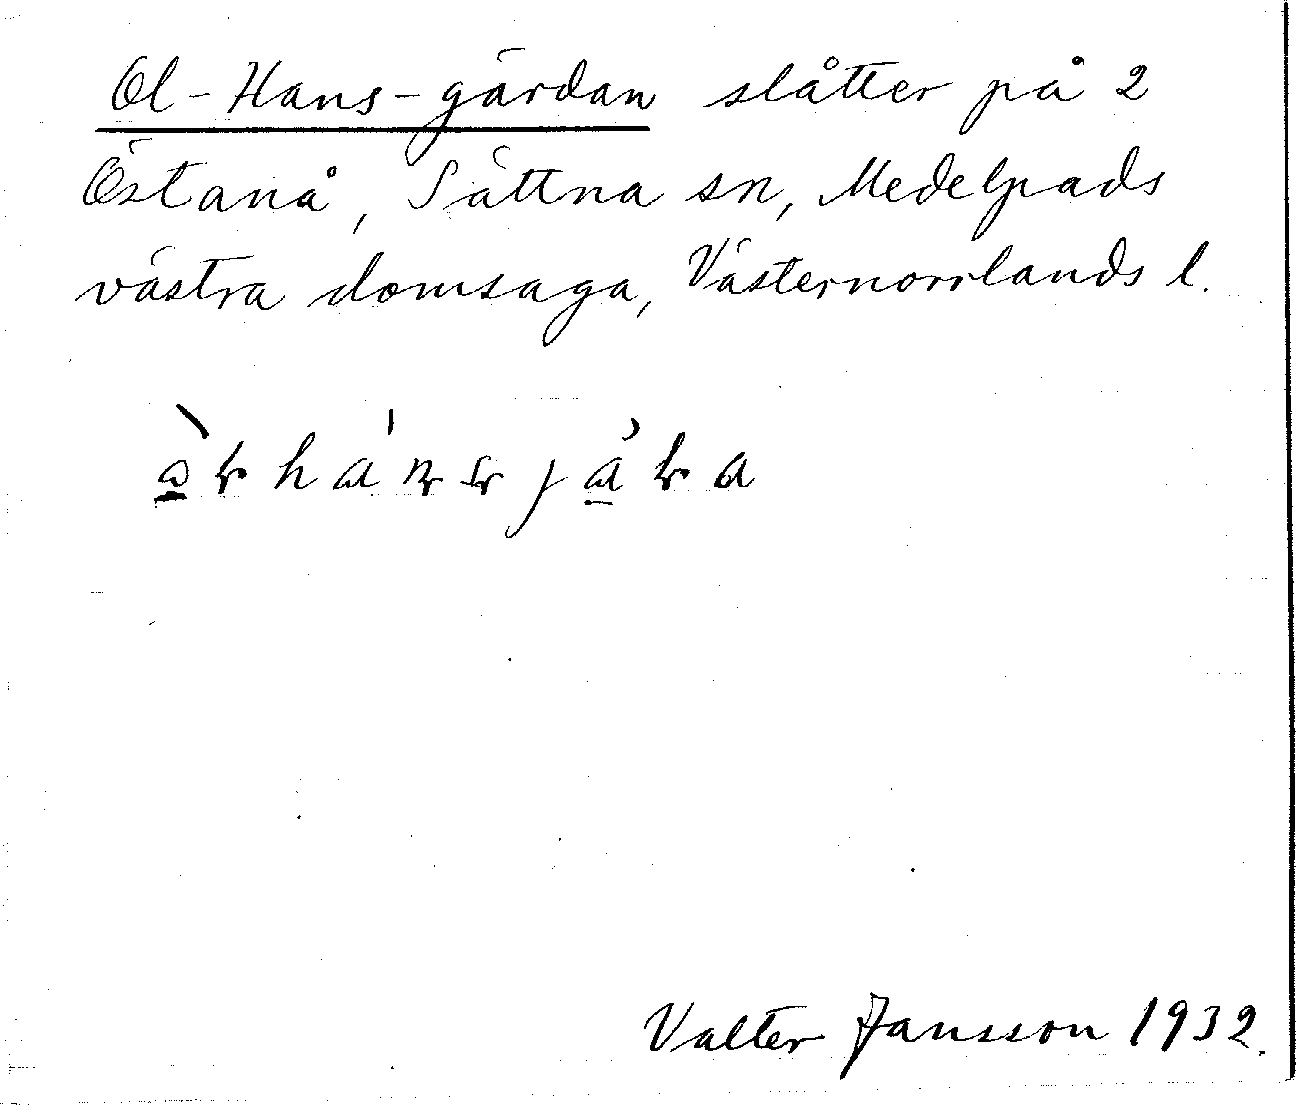 Ol-Hans-gärdan slåtter på 2
Östanå, Sättna sn, Medelpads
västra domsaga, Västernorrlands l.
Valter Jansson 1932.